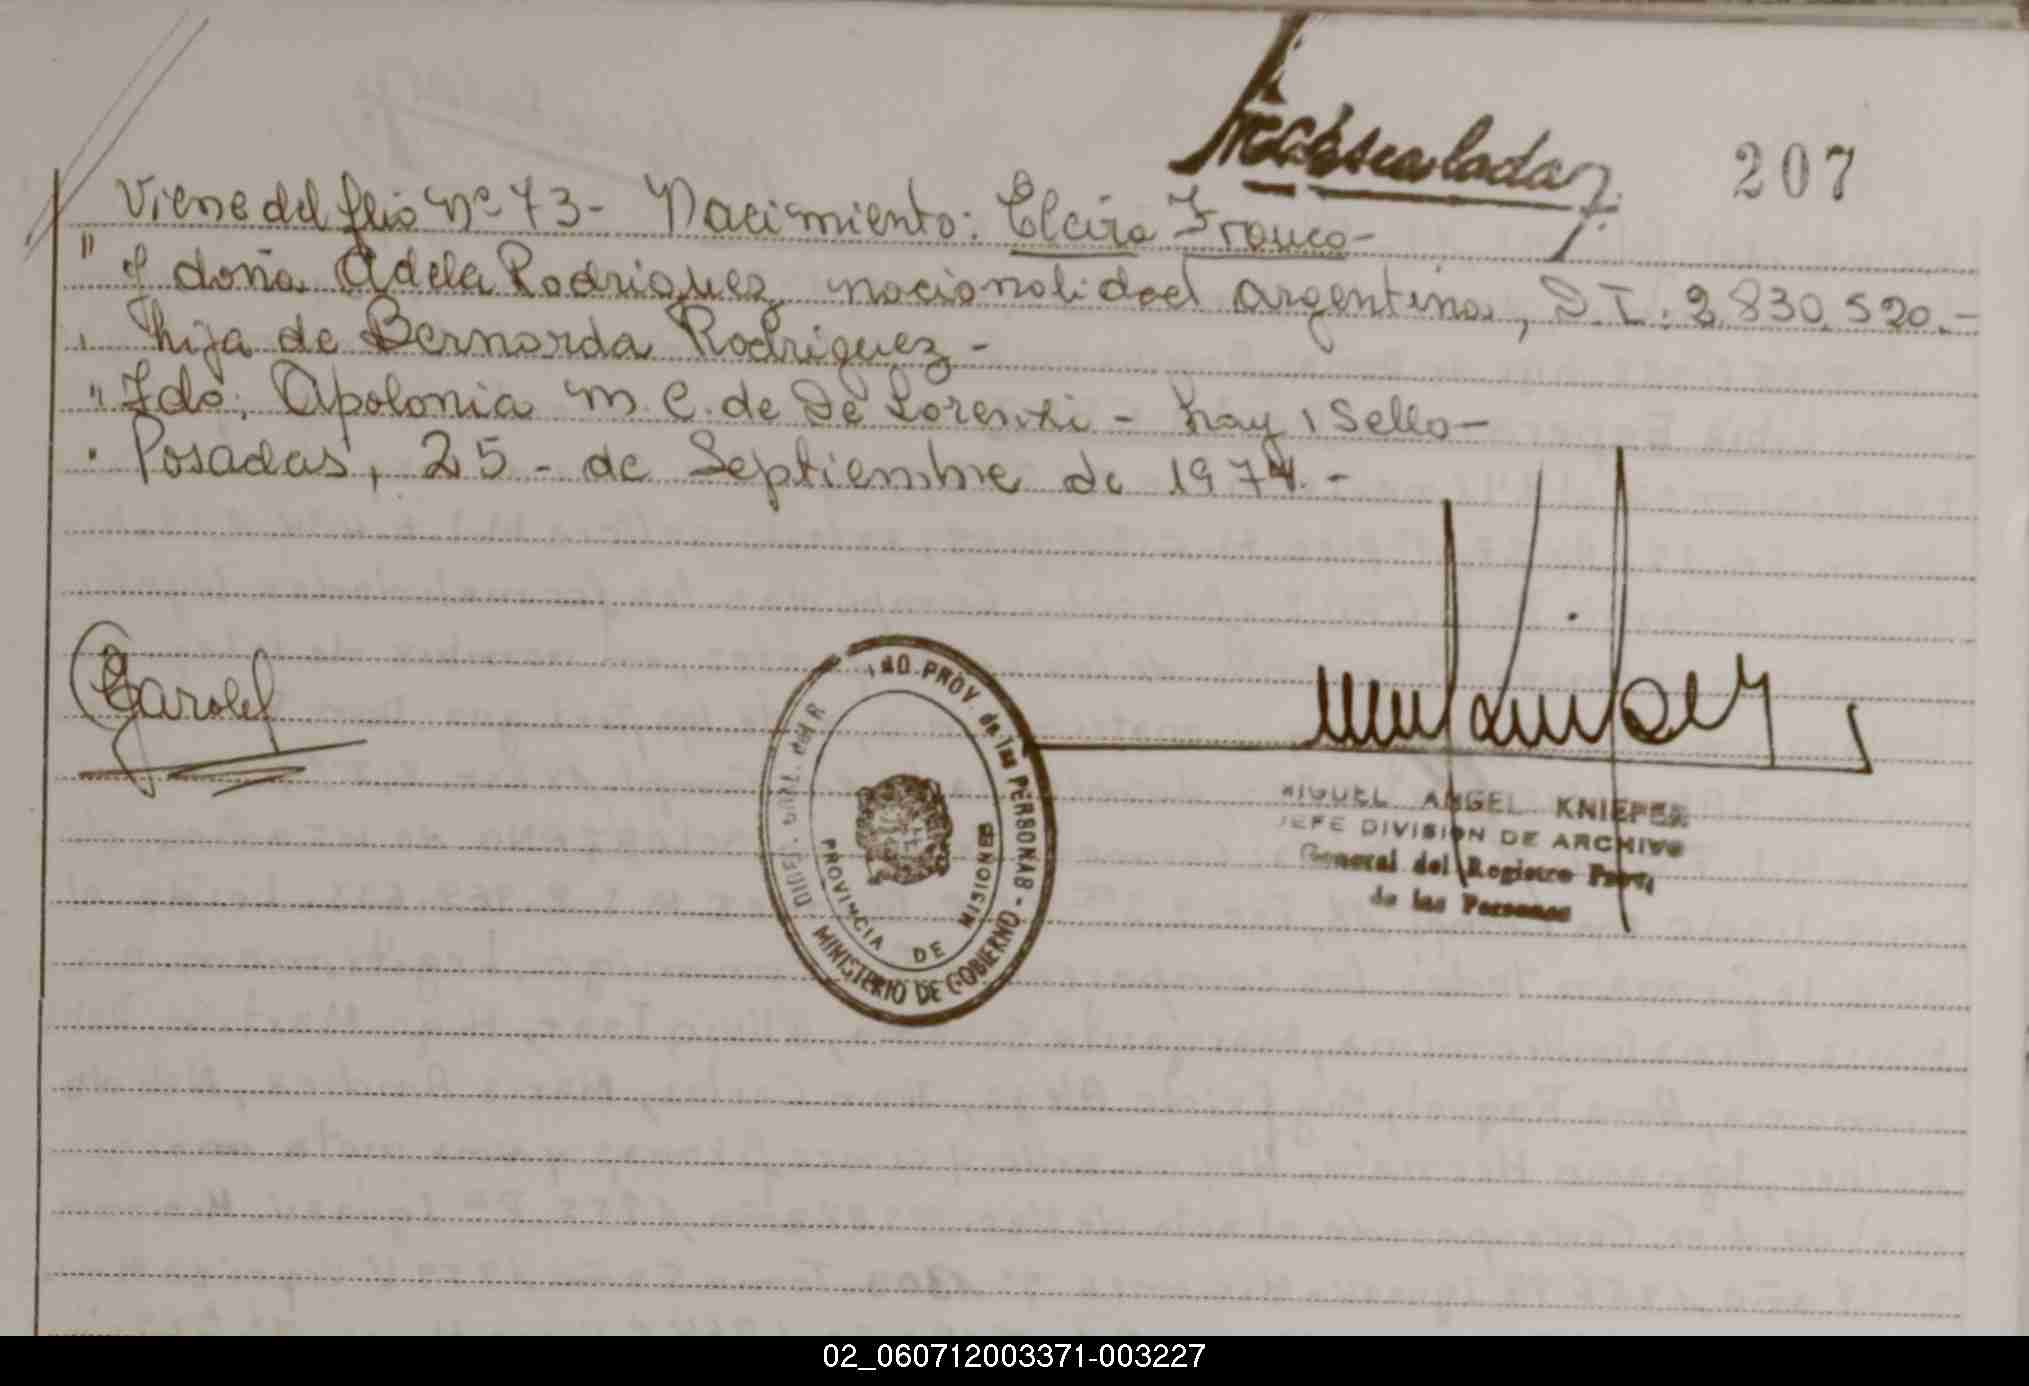 207
Viene del flio Nº 73- Nacimiento: Elcira Franco-
" y doña Adela Rodriguez nacionalidad argentina, D.I. 2.830.520.-
hija de Bernarda Rodriguez-
" Fdo: Apolonia M. C. de De Lorenzi - hay 1 Sello-
Posadas, 25 - de Septiembre de 1974.-
PROV. de las PERSONAS - MINISTERIO DE GOBIERNO
PROVINCIA DE MISIONES
MIGUEL ANGEL KNIEPER
JEFE DIVISION DE ARCHIVO
General del Registro Prov.
de las Personas
02_060712003371-003227